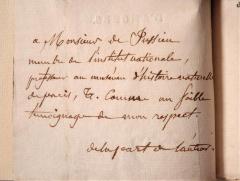 a Monsieur de Jussieu
membre de l'institut nationale,
professeur au museum d'histoire naturelle
de paris, &c. comme un foible
témoignage de mon respect.
de la part de l'auteur.